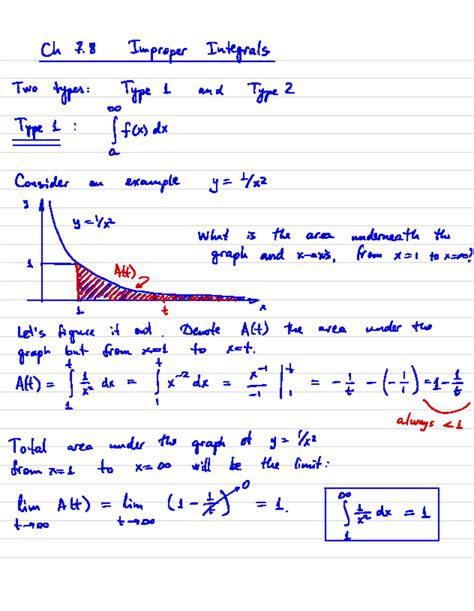 Ch 7.8 Improper Integrals
Two types: Type 1 and Type 2
Type 1 : ∫_a^∞ f(x) dx
Consider an example y = 1/x²
y
y = 1/x²
What is the area underneath the
graph and x-axis, from x=1 to x=∞?
1
A(t)
1 t x
Let's figure it out. Denote A(t) the area under the
graph but from x=1 to x=t.
A(t) = ∫_1^t 1/x² dx = ∫_1^t x⁻² dx = x⁻¹/-1 |_1^t = - 1/t - (- 1/1) = 1 - 1/t
always < 1
Total area under the graph of y = 1/x²
from x=1 to x=∞ will be the limit:
lim_{t→∞} A(t) = lim_{t→∞} (1 - 1/t) = 1.
0
∫_1^∞ 1/x² dx = 1